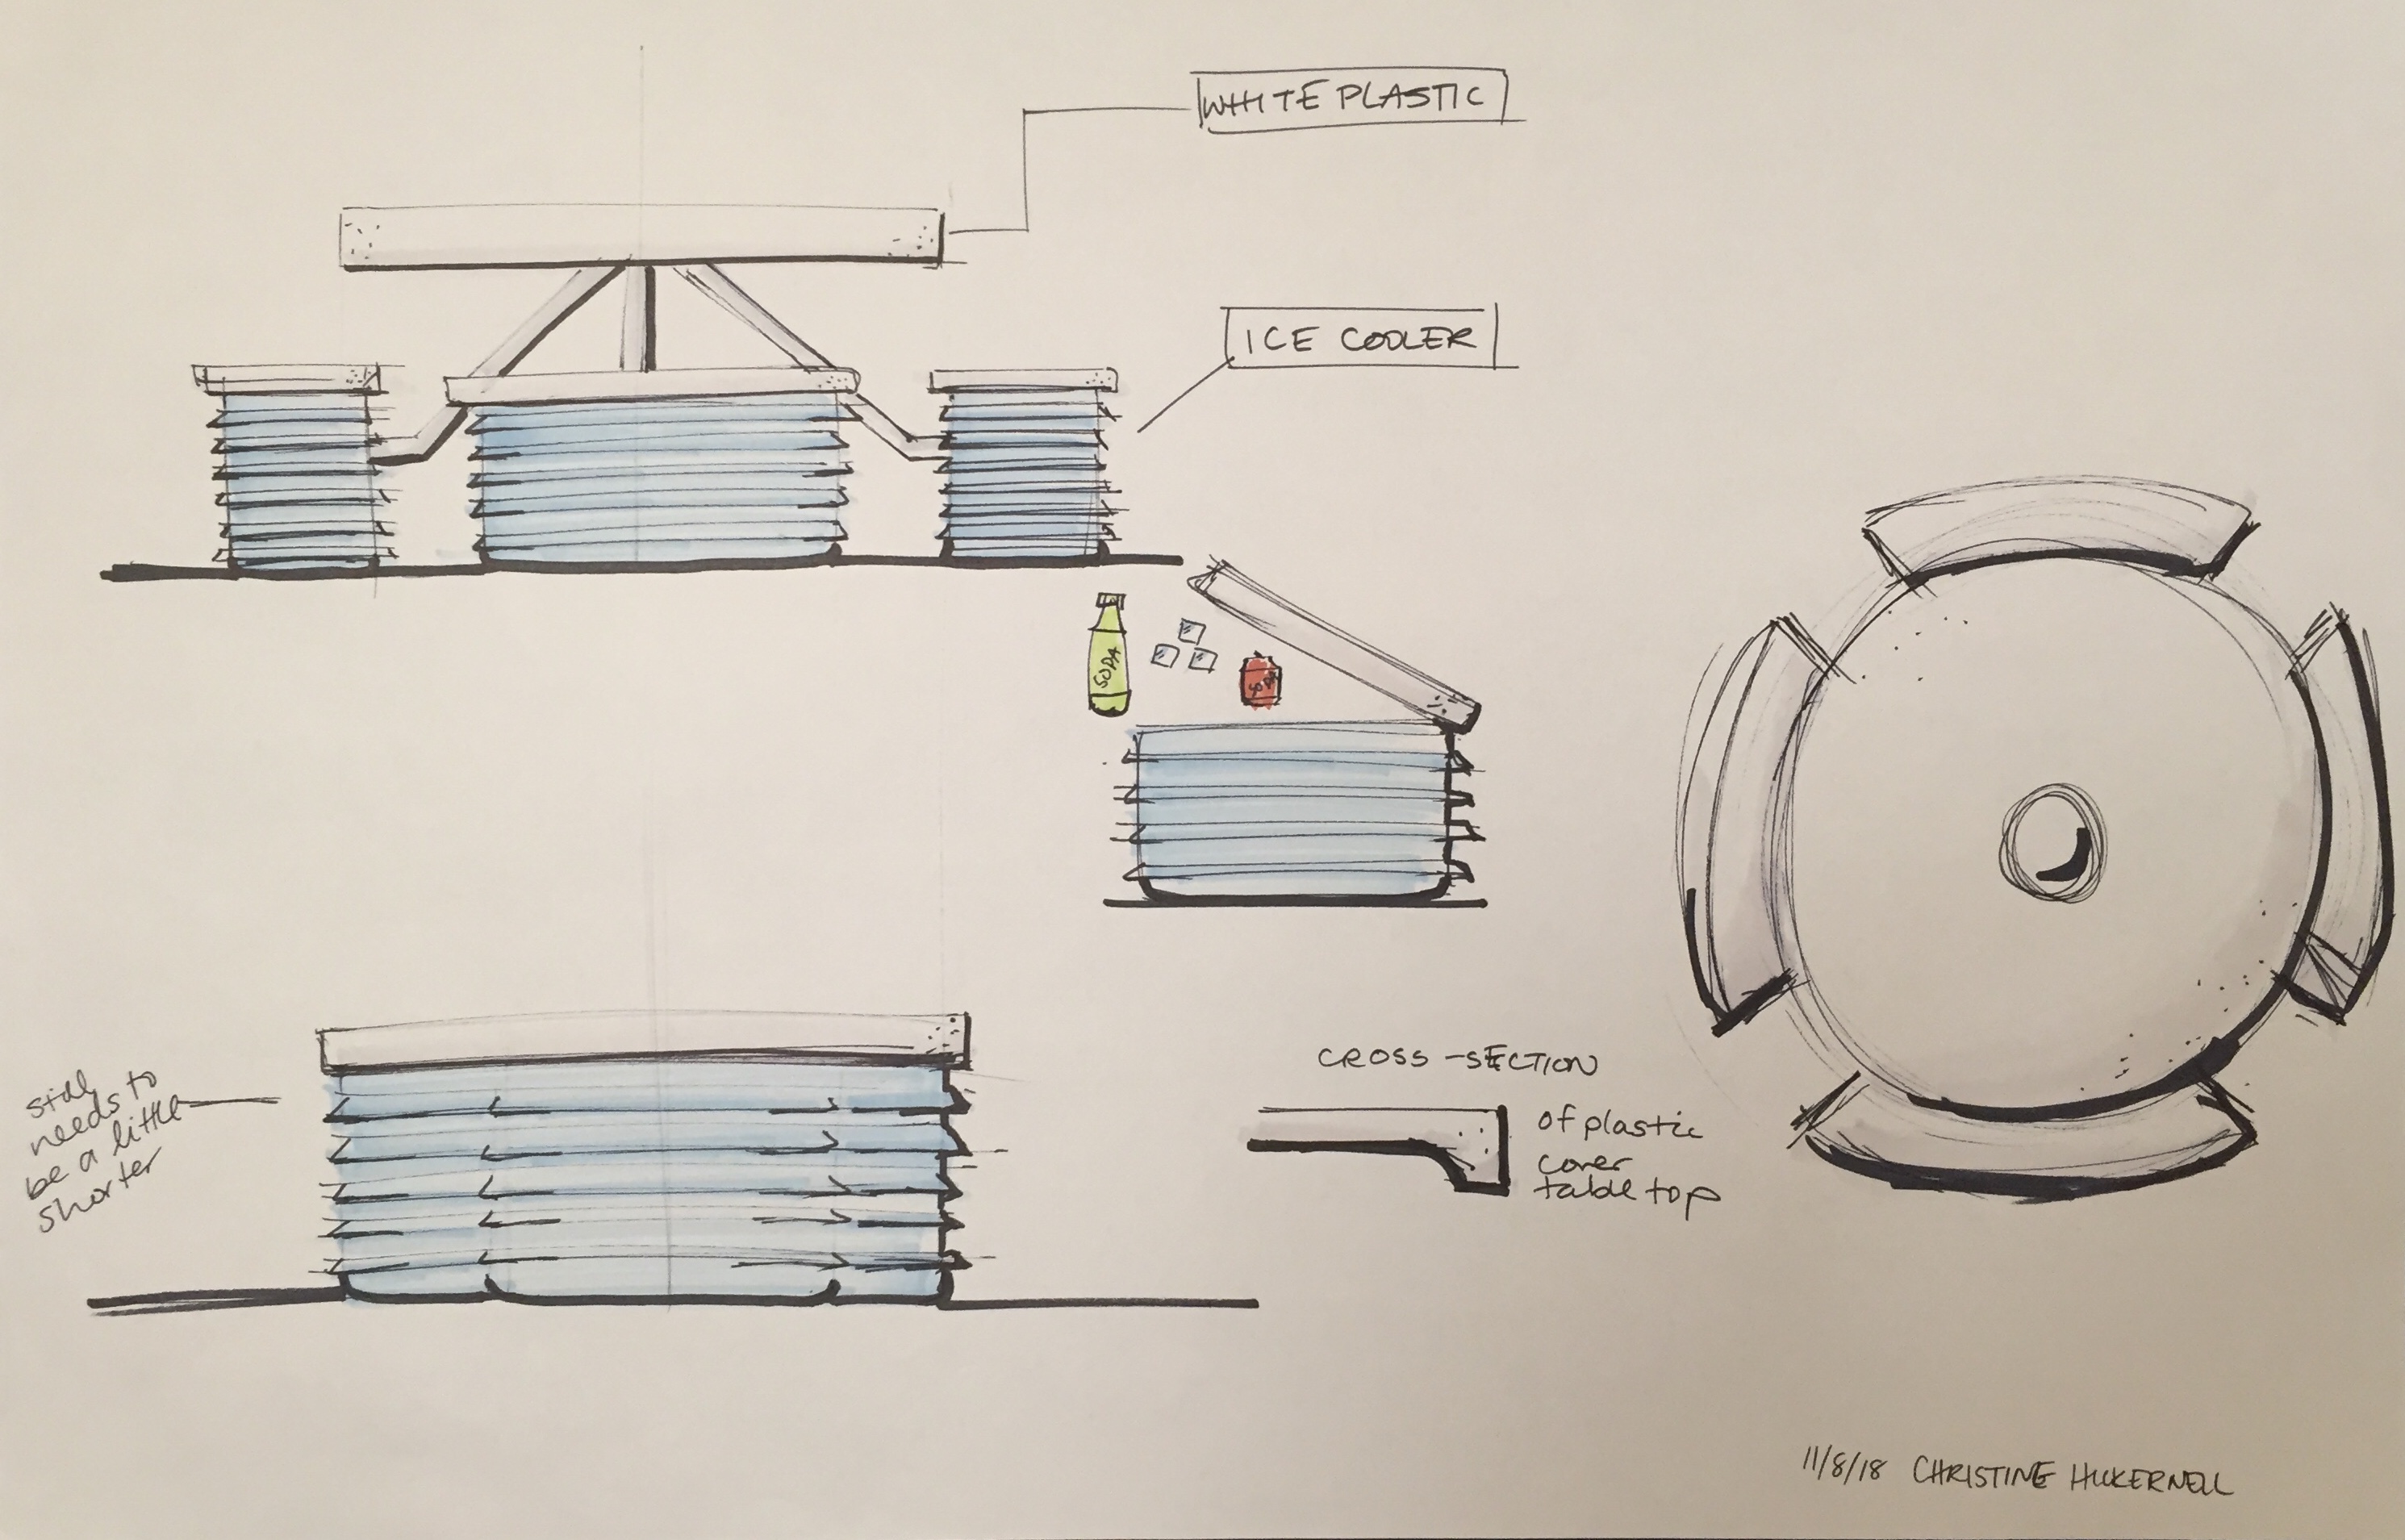 WHITE PLASTIC
ICE COOLER
SODA
SODA
still
needs to
be a little
shorter
CROSS-SECTION
of plastic
cover
table top
11/8/18 CHRISTINE HICKERNELL